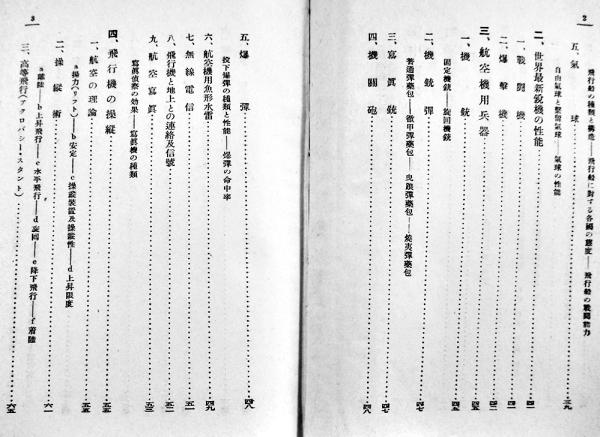 2
飛行船の種類と構造——飛行船に對する各國の態度——飛行船の戰鬪能力
五、氣球 三九
自由氣球と繫留氣球——氣球の性能
二、世界最新銳機の性能 四一
一、戰鬪機 四一
二、爆擊機 四三
三、航空機用兵器 四五
一、機銃 四五
固定機銃——旋回機銃
二、機銃彈 四七
普通彈藥包——徹甲彈藥包——曳跟彈藥包——燒夷彈藥包
三、寫眞銃 四七
四、機關砲 四八
3
五、爆彈 四八
投下爆彈の種類と性能——爆彈の命中率
六、航空機用魚形水雷 四九
七、無線電信 五一
八、飛行機と地上との連絡及信號 五二
九、航空寫眞 五三
寫眞偵察の効果——寫眞機の種類
四、飛行機の操縱 五五
一、航空の理論 五五
a 揚力(リフト)——b 安定——c 操縱裝置及操縱性——d 上昇限度
二、操縱術 六一
a 離陸——b 上昇飛行——c 水平飛行——d 旋回——e 降下飛行——f 着陸
三、高等飛行(アクロバシー・スタント) 六五